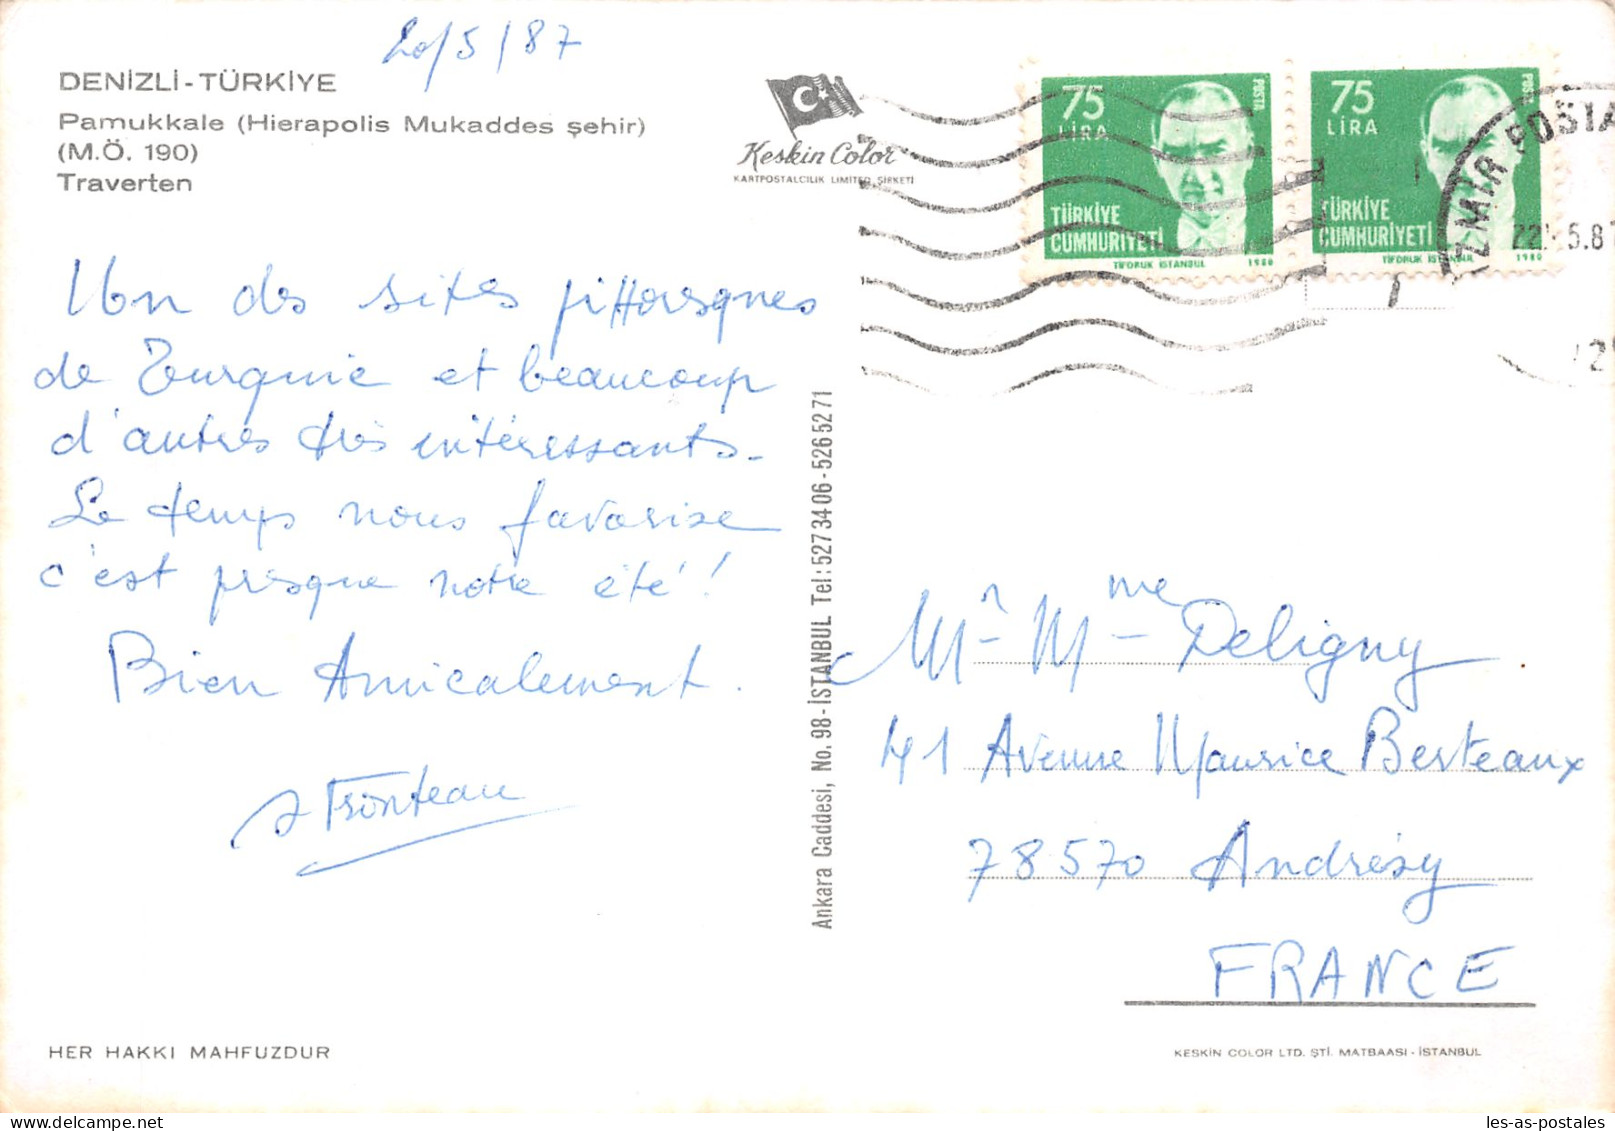 20/5/87
DENİZLİ-TÜRKİYE
Pamukkale (Hierapolis Mukaddes şehir)
(M.Ö. 190)
Traverten
Keskin Color
KARTPOSTALCILIK LIMITED ŞIRKETI
75
LİRA
TÜRKİYE
CUMHURİYETİ
POSTA
TİFDRUK İSTANBUL 1980
75
LİRA
TÜRKİYE
CUMHURİYETİ
POSTA
TİFDRUK İSTANBUL 1980
İZMİR POSTA
22 5.87
Un des sites pittoresques
de Turquie et beaucoup
d'autres très intéressants.
Le temps nous favorise
c'est presque notre été !
Bien Amicalement.
Fronteau
Ankara Caddesi, No. 98 - İSTANBUL Tel: 527 34 06 - 526 52 71
Mr Mme Deligny
41 Avenue Maurice Berteaux
78570 Andrésy
FRANCE
HER HAKKI MAHFUZDUR
KESKİN COLOR LTD. ŞTİ. MATBAASI - İSTANBUL
les-as-postales